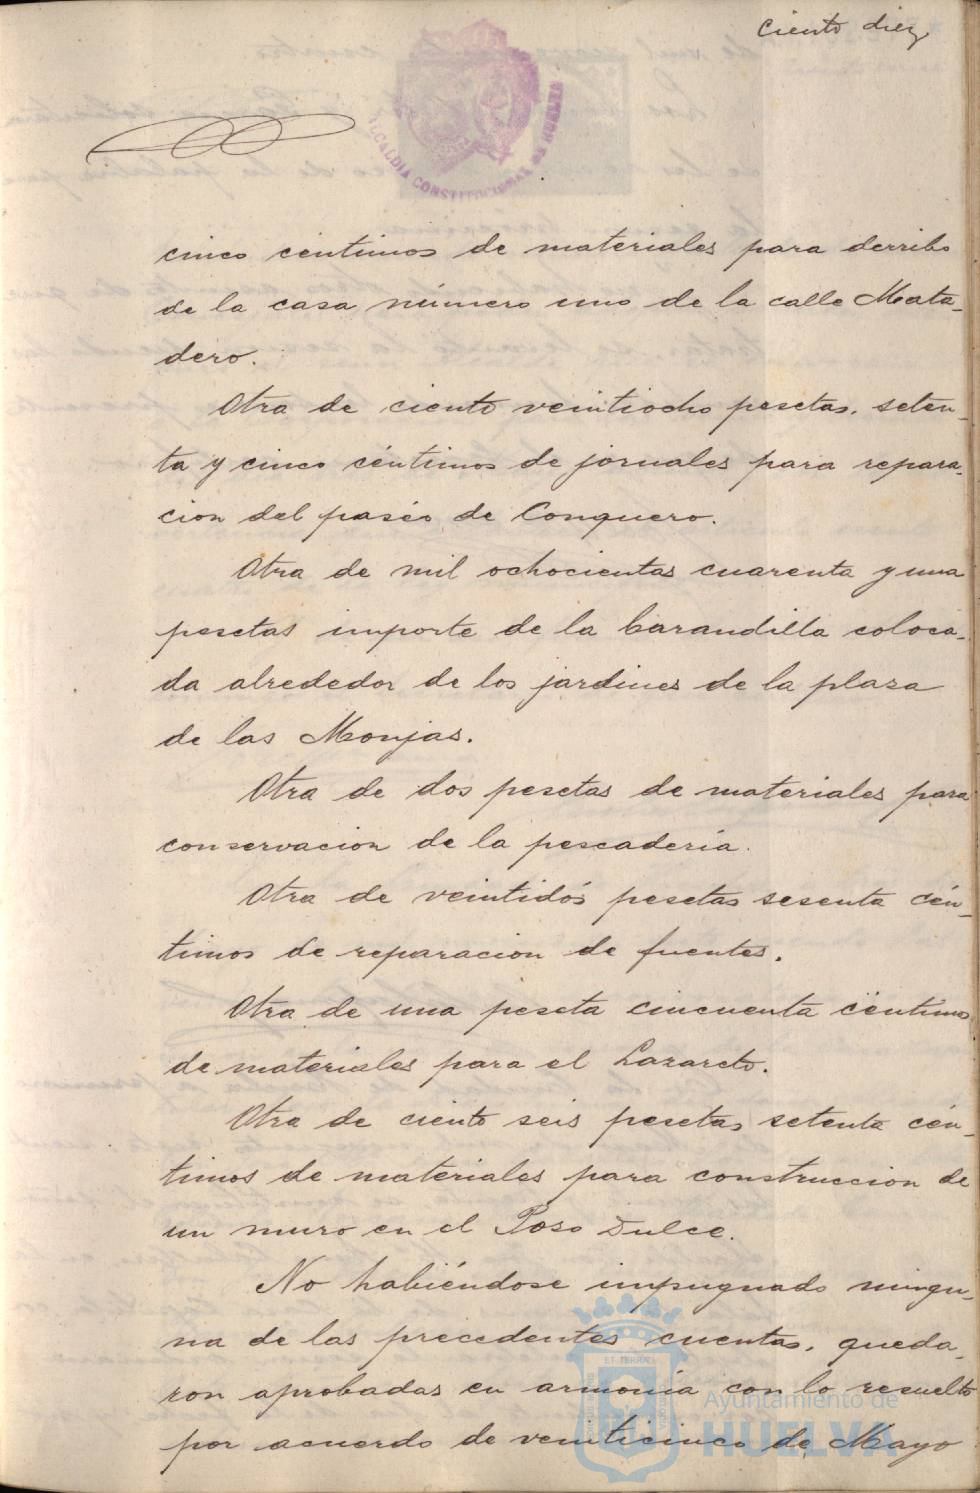 Ciento diez
ALCALDIA CONSTITUCIONAL DE HUELVA
cinco céntimos de materiales para derribo
de la casa número uno de la calle Mata-
dero.
Otra de ciento veintiocho pesetas, seten-
ta y cinco céntimos de jornales para repara-
cion del paséo de Conquero.
Otra de mil ochocientas cuarenta y una
pesetas importe de la barandilla coloca-
da alrededor de los jardines de la plasa
de las Monjas.
Otra de dos pesetas de materiales para
conservacion de la pescadería.
Otra de veintidós pesetas sesenta cén-
timos de reparacion de fuentes.
Otra de una peseta cincuenta céntimos
de materiales para el Lazareto.
Otra de ciento seis pesetas setenta cén-
timos de materiales para construccion de
un muro en el Poso Dulce.
No habiéndose impugnado ningu-
na de las precedentes cuentas, queda-
ron aprobadas en armonía con lo resuelto
por acuerdo de veinticinco de Mayo
Ayuntamiento de
HUELVA